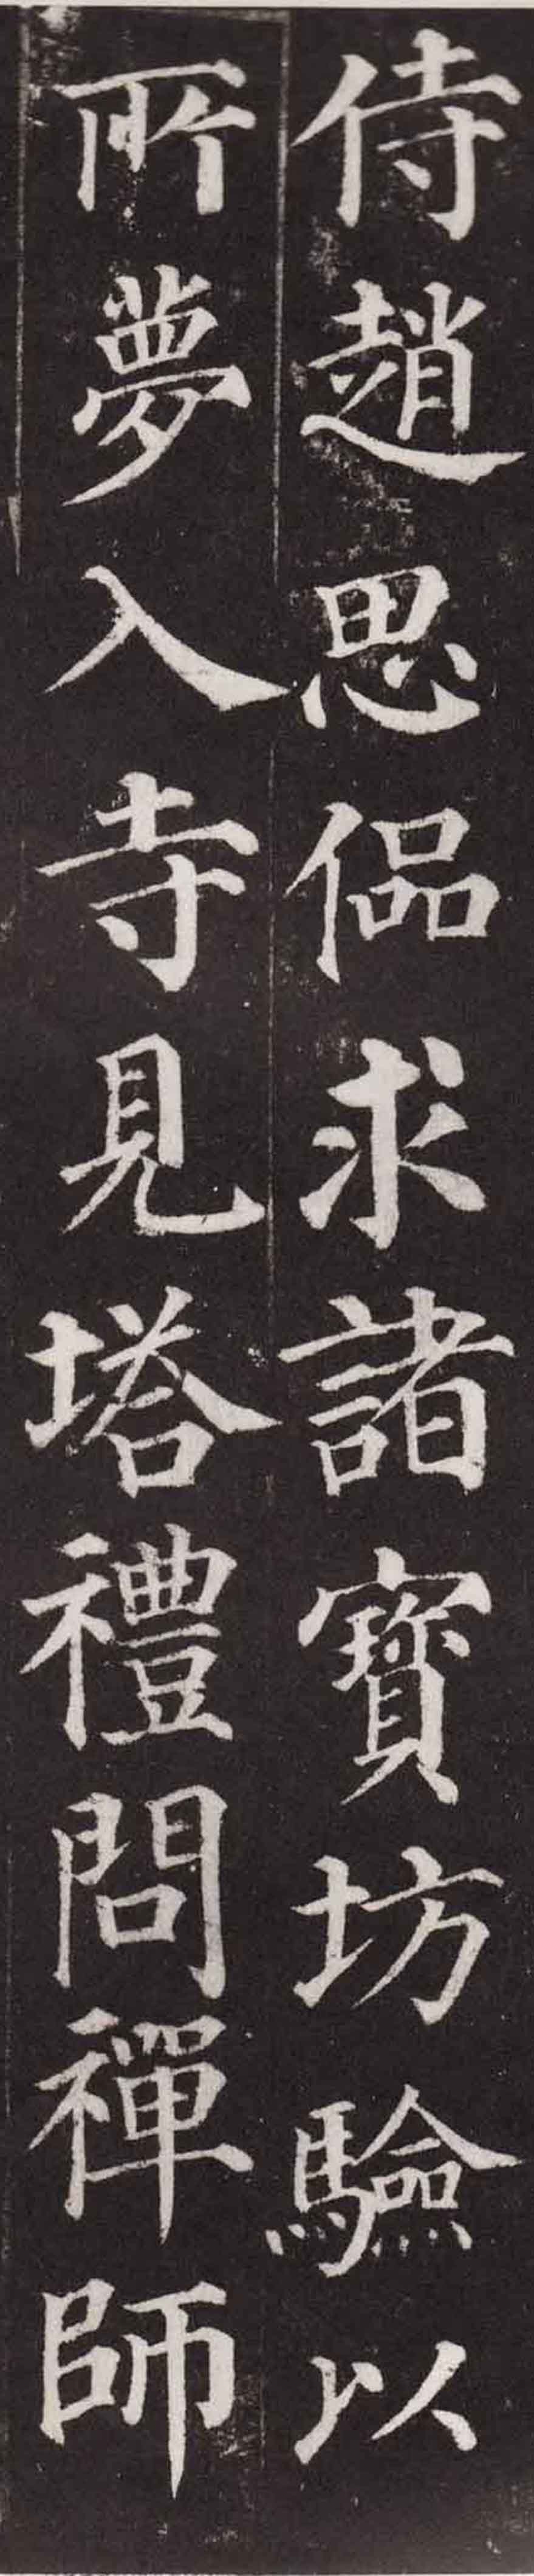 侍趙思偘求諸寶坊驗以
所夢入寺見塔禮問禪師